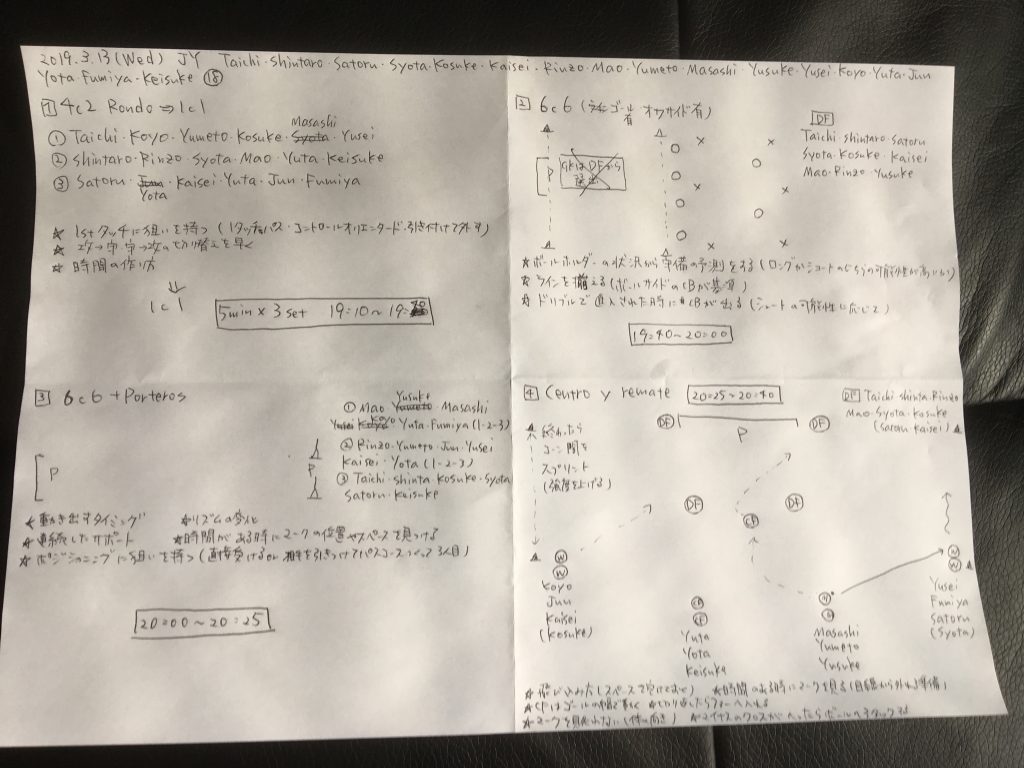 2019.3.13(Wed) JY Taichi・Shintaro・Satoru・Syota・Kosuke・Kaisei・Rinzo・Mao・Yumeto・Masashi・Yusuke・Yusei・Koyo・Yuta・Jun
Yota・Fumiya・Keisuke ⑱
1 4c2 Rondo ⇒ 1c1
Masashi
① Taichi・Koyo・Yumeto・Kosuke・Syota・Yusei
② Shintaro・Rinzo・Syota・Mao・Yuta・Keisuke
③ Satoru・Jun・Kaisei・Yuta・Jun・Fumiya
Yota
★ 1stタッチに狙いを持つ (1タッチパス・コントロールオリエンタード・引き付けて外す)
★ 攻→守、守→攻の切り替えを早く
★ 時間の作り方
1c1
5min × 3set 19:10~19:
2 6c6 (ゴール有 オフサイド有)
DF
Taichi Shintaro Satoru
Syota Kosuke Kaisei
Mao Rinzo Yusuke
P
GKはDFから
★ボールホルダーの状況から守備の予測をする (ロングかショートのどちらの可能性が高いか)
★ラインを揃える (ボールサイドのCBが基準)
★ドリブルで進入された時にCBが出る (シュートの可能性に応じて)
19:40~20:00
3 6c6 + Porteros
Yusuke
① Mao Yumeto・Masashi
Yusei Koyo Yuta・Fumiya (1-2-3)
② Rinzo・Yumeto・Jun・Yusei
Kaisei・Yota (1-2-3)
③ Taichi・Shinta・Kosuke・Syota
Satoru・Keisuke
P
P
★動き出すタイミング ★リズムの変化
★連続したサポート ★時間がある時にマークの位置やスペースを見つける
★ポジショニングに狙いを持つ (直接受けるor相手を引きつけてパスコースつくって3人目)
20:00~20:25
4 Centro y remate 20:25~20:40
DF Taichi・Shinta・Rinzo
Mao・Syota・Kosuke
(Satoru Kaisei)
終わったら
コーン間を
スプリント
(強度を上げる)
DF P DF
DF DF
CF
W
W
Koyo
Jun
Kaisei
(Kosuke)
CF
CF
Yuta
Yota
Keisuke
Masashi
Yumeto
Yusuke
W
W
Yusei
Fumiya
Satoru
(Syota)
★飛び込み方 (スペースを空けておく) ★時間のある時にマークを見る (目線から外れる準備)
★CFはゴールの幅で動く ★切り返したらファーへ入れる
★マークを見失わない (体の向き) ★マイナスのクロスが入ったらボールにアタックする